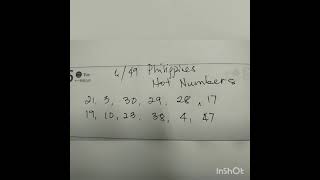 6/49 Philippines
Hot Numbers
21, 3, 30, 29, 28, 17
19, 10, 23, 38, 4, 47
InShOt